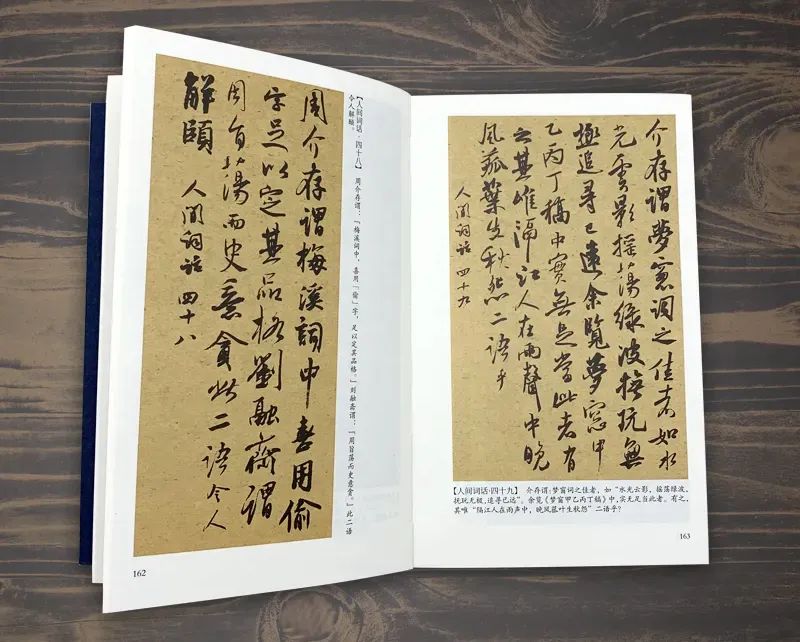 周介存謂梅溪詞中喜用偷
字足以定其品格劉融齋謂
周旨蕩而史意貪此二語令人
解頤
人間詞話 四十八
【人间词话·四十八】 周介存谓:「梅溪词中,喜用「偷」字,足以定其品格。」刘融斋谓:「周旨荡而史意贪。」此二语
令人解颐。
162
介存謂夢窗詞之佳者如水
光雲影搖蕩綠波撫玩無
極追尋已遠余覽夢窗甲
乙丙丁稿中實無足當此者有
之其唯隔江人在雨聲中晚
風菰葉生秋怨二語乎
人間詞話 四十九
【人间词话·四十九】 介存谓:梦窗词之佳者,如“水光云影,摇荡绿波,
抚玩无极,追寻已远”。余览《梦窗甲乙丙丁稿》中,实无足当此者。有之,
其唯“隔江人在雨声中,晚风菰叶生秋怨”二语乎?
163